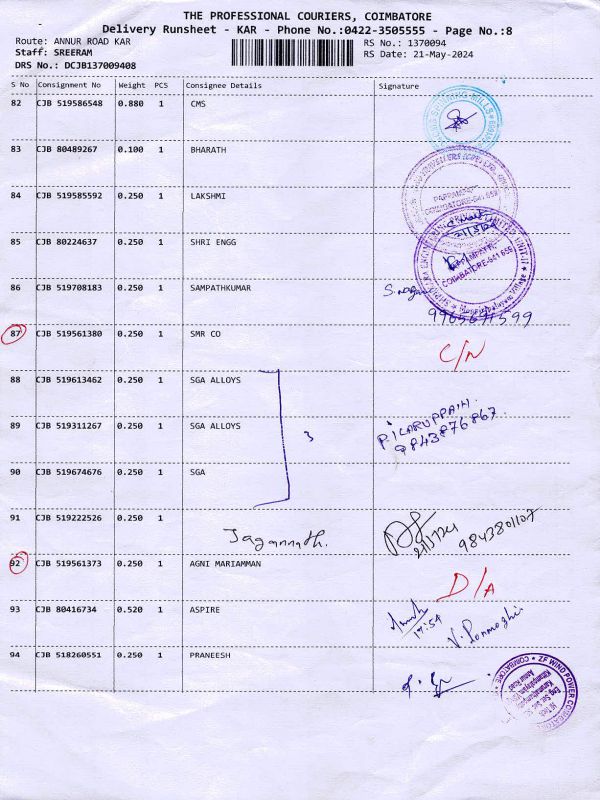 THE PROFESSIONAL COURIERS, COIMBATORE
Delivery Runsheet - KAR - Phone No.:0422-3505555 - Page No.:8
Route: ANNUR ROAD KAR RS No.: 1370094
Staff: SREERAM RS Date: 21-May-2024
DRS No.: DCJB137009408
S No Consignment No Weight PCS Consignee Details Signature
82 CJB 519586548 0.880 1 CMS
SPINNING MILLS
83 CJB 80489267 0.100 1 BHARATH
84 CJB 519585592 0.250 1 LAKSHMI
COIMBATORE-641 659
85 CJB 80224637 0.250 1 SHRI ENGG
COIMBATORE-641 659
86 CJB 519708183 0.250 1 SAMPATHKUMAR
9965691599
87 CJB 519561380 0.250 1 SMR CO C/N
88 CJB 519613462 0.250 1 SGA ALLOYS
89 CJB 519311267 0.250 1 SGA ALLOYS 3 P. ILARUPPAIH.
9843876867.
90 CJB 519674676 0.250 1 SGA
91 CJB 519222526 0.250 1 Jagannath. 9843801107
92 CJB 519561373 0.250 1 AGNI MARIAMMAN D/A
93 CJB 80416734 0.520 1 ASPIRE 17:54 V. Ponmozhi
94 CJB 518260551 0.250 1 PRANEESH
ZF WIND POWER COIMBATORE